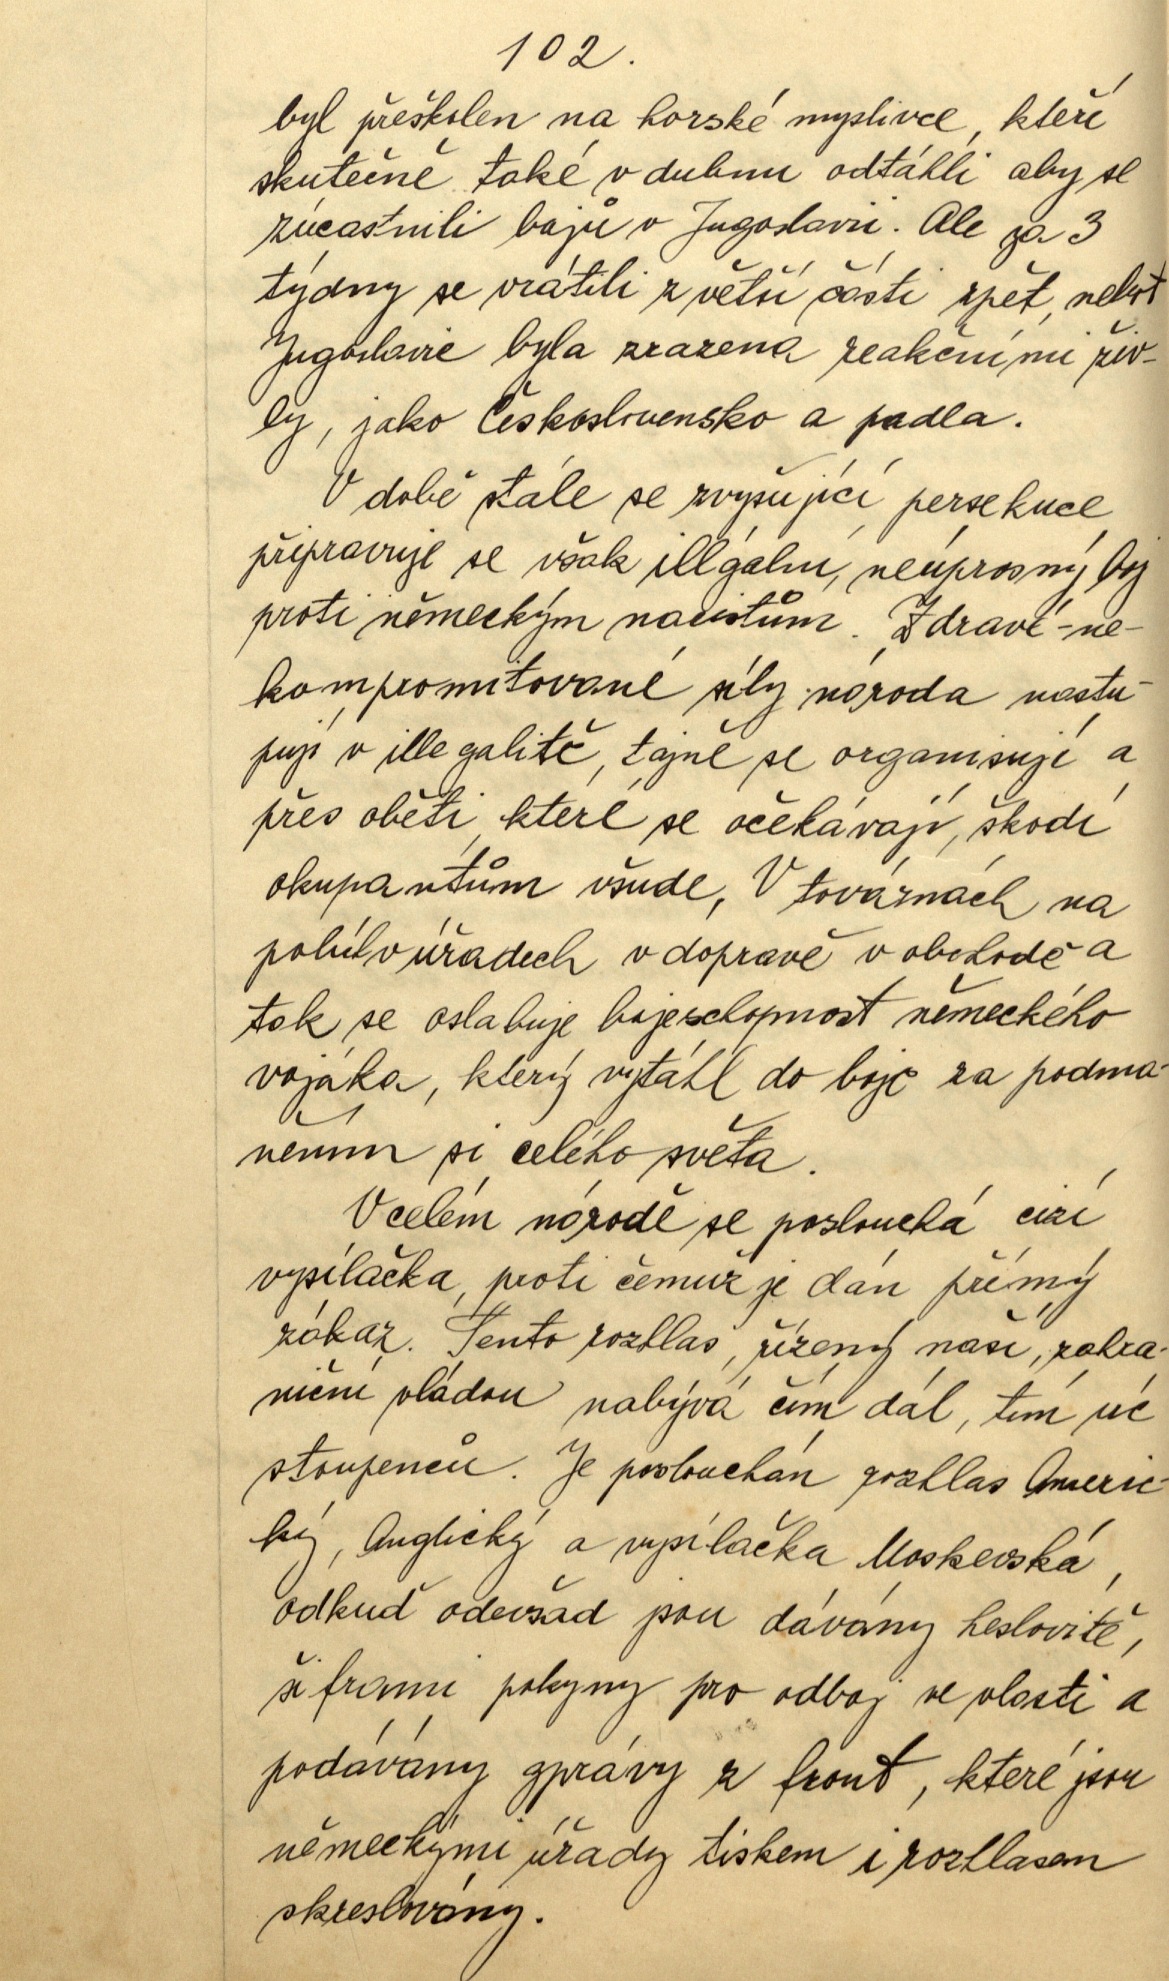 102.
byl přeškolen na horské myslivce, kteří
skutečně také v dubnu odtáhli aby se
zúčastnili bojů v Jugoslavii. Ale za 3
týdny se vrátili z větší části zpět, neboť
Jugoslavie byla zrazena reakčními živ-
ly, jako Československo a padla.
V době stále se zvyšující persekuce
připravuje se však illgální, neúprosný boj
proti německým nacistům. Zdravé-ne-
kompromitované síly národa nastu-
pují v illegalitě, tajně se organisují a
přes oběti, které se očekávají, škodí
okupantům všude, V továrnách na
poli v úřadech v dopravě v obchodě a
tak se oslabuje bojeschopnost německého
vojáka, který vytáhl do boje za podma-
něním si celého světa.
V celém národě se poslouchá cizí
vysílačka, proti čemuž je dán přímý
zákaz. Tento rozhlas, řízený naší, zahra-
niční vládou nabývá čím dál, tím víc
stoupenců. Je poslouchán rozhlas Americ-
ký, Anglický a vysílačka Moskevská,
odkuď odevšad jsou dávány heslovitě,
šiframi pokyny pro odboj ve vlasti a
podávány zprávy z front, které jsou
německými úřady tiskem i rozhlasem
skreslovány.